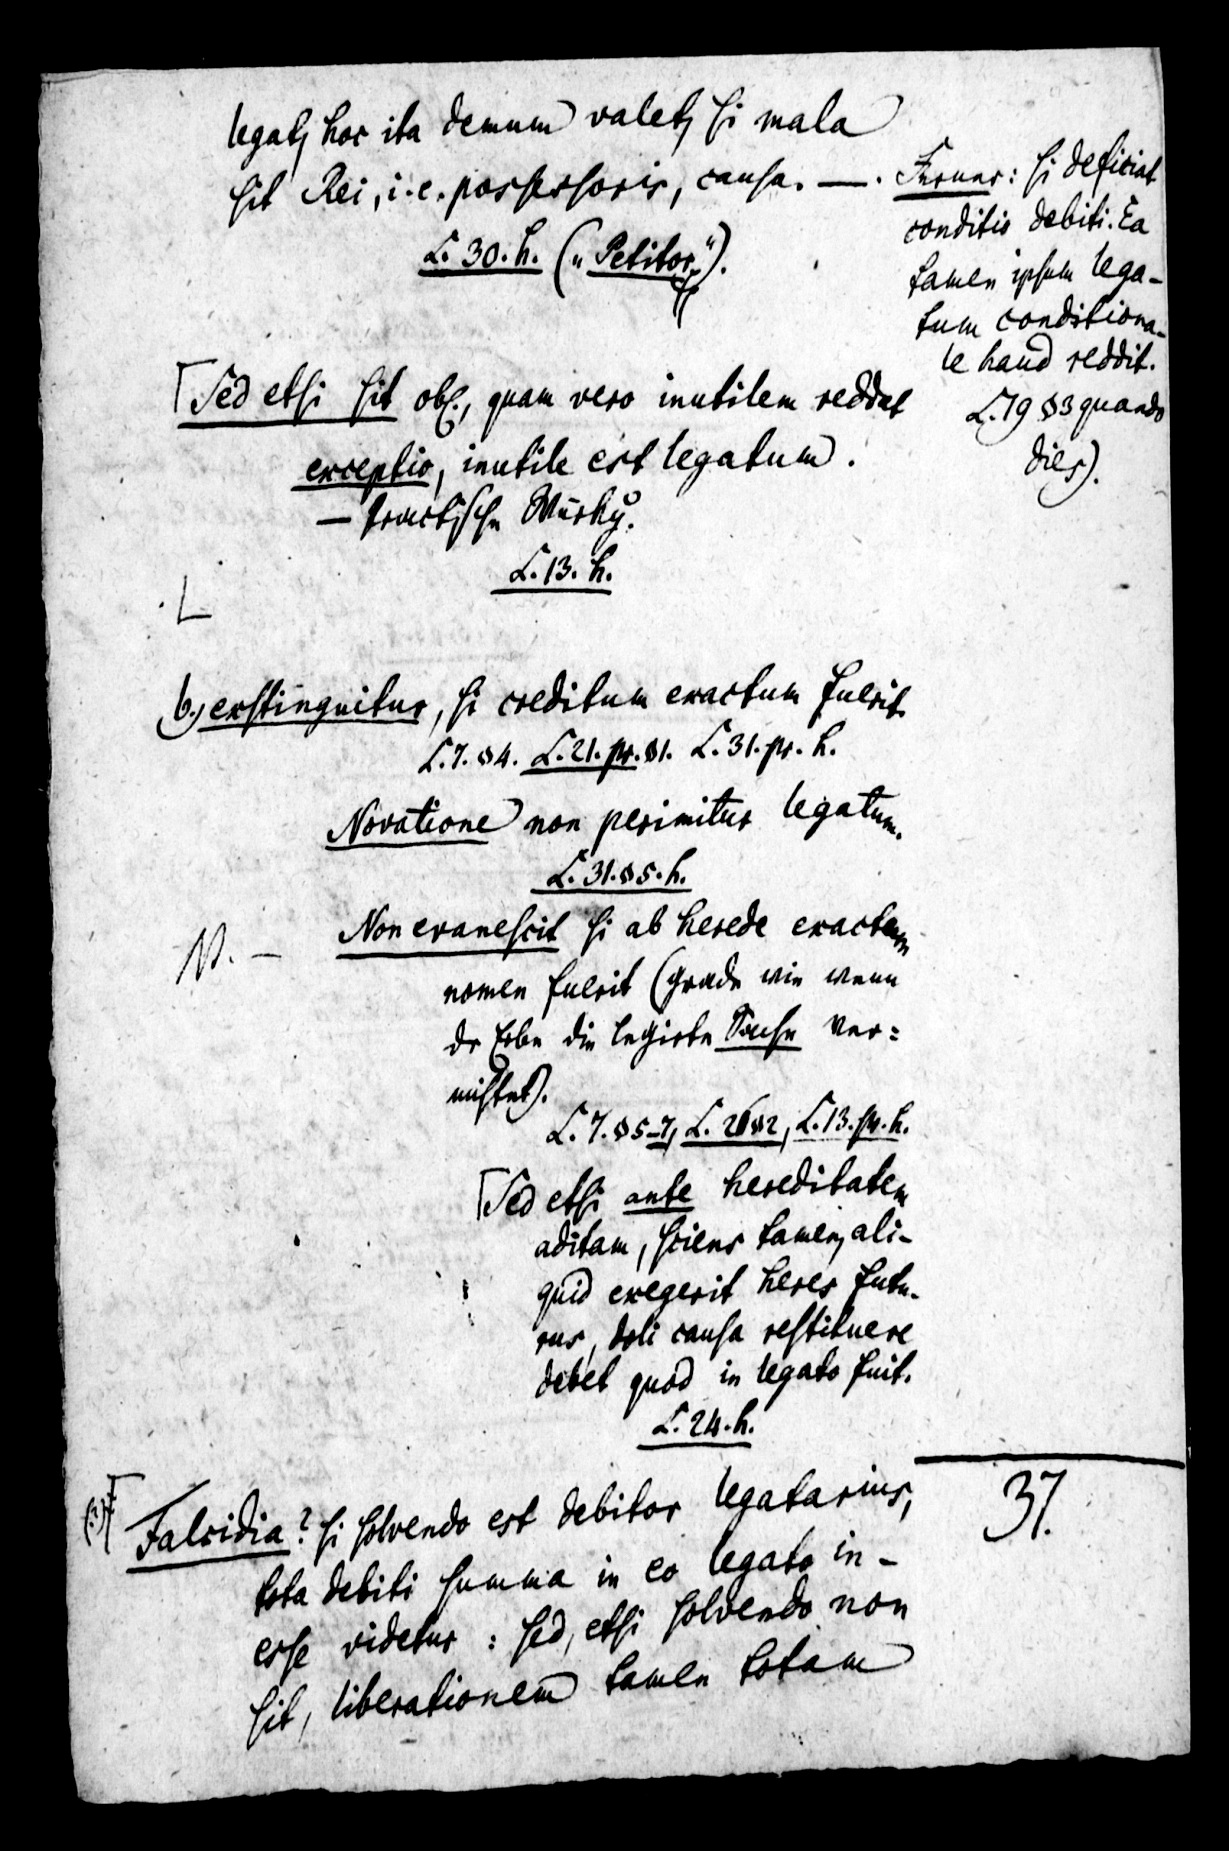 legatū hoc ita demum valet, si mala
sit Rei, i. e. possessoris, causa. —.
L. 30. h. („Petitor“).
Rursus: si deficiat
conditio debiti. Ea
tamen ipsum lega-
tum conditiona-
le haud reddit.
L. 19 §3 quando
dies).
Sed etsi sit obl., quam vero inutilem reddat
exceptio, inutile est legatum.
— practische Würkg.
L. 13. h.
b.) exstinguitur, si creditum exactum fuerit
L. 7. §4. L. 21. pr. §1. L. 31. pr. h.
Novatione non perimitur legatum.
L. 31. §5. h.
N. — Non evanescit si ab herede exactum
nomen fuerit (grade wie wenn
dr Erbe die legirte Sache ver=
nichtet).
L. 7. §5-7, L. §2, L. 13. pr. h.
Sed etsi ante hereditatem
aditam, sciens tamen, ali-
quid exegerit heres futu-
rus, doli causa restituere
debet quod in legato fuit.
L. 24. h.
37.
(3) Falcidia? si solvendo est debitor legatarius,
tota debiti summa in eo legato in-
esse videtur: sed, etsi solvendo non
sit, liberationem tamen totam